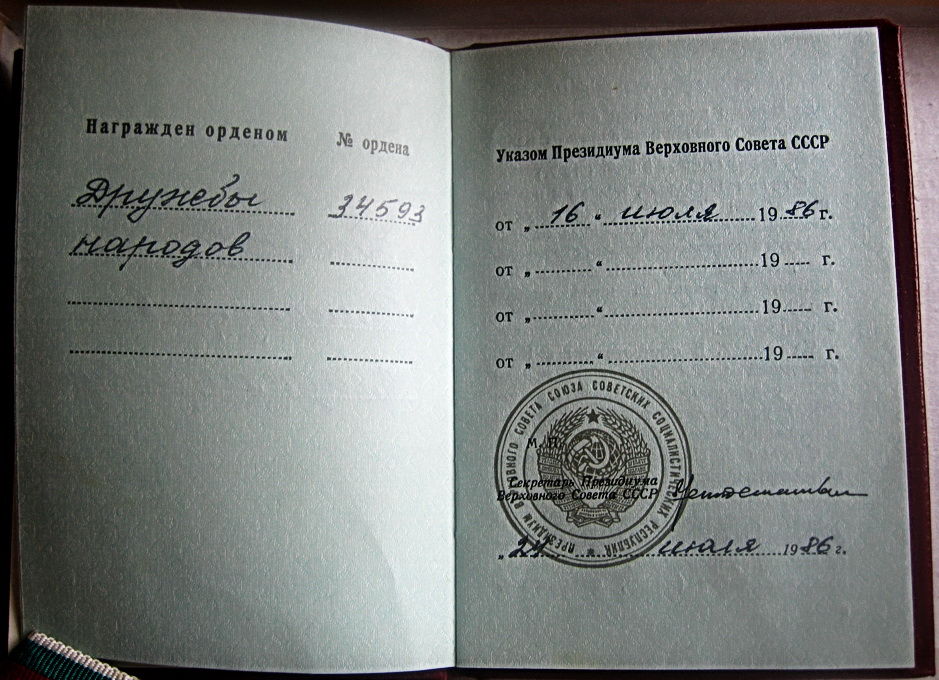 Награжден орденом № ордена
Дружбы 34593
народов
Указом Президиума Верховного Совета СССР
от „ 16 “ июля 1986 г.
от „ “ 19 г.
от „ “ 19 г.
от „ “ 19 г.
ПРЕЗИДИУМ ВЕРХОВНОГО СОВЕТА СОЮЗА СОВЕТСКИХ СОЦИАЛИСТИЧЕСКИХ РЕСПУБЛИК
М. П.
Секретарь Президиума
Верховного Совета СССР
„ июля 1986 г.